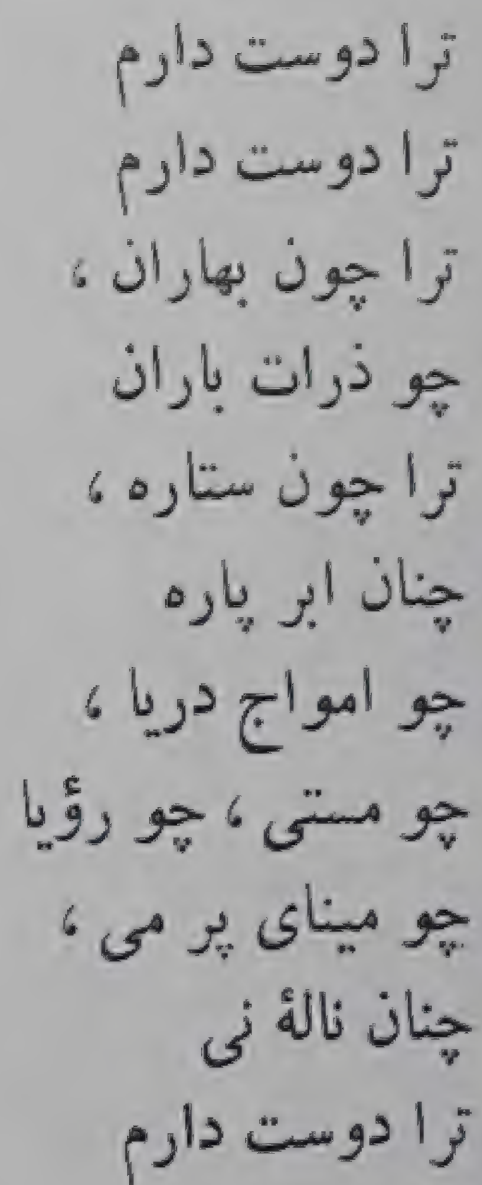 ترا دوست دارم
ترا دوست دارم
ترا چون بهاران ،
چو ذرات باران
ترا چون ستاره ،
چنان ابر پاره
چو امواج دریا ،
چو مستی ، چو رؤیا
چو مینای پر می ،
چنان نالهٔ نی
ترا دوست دارم